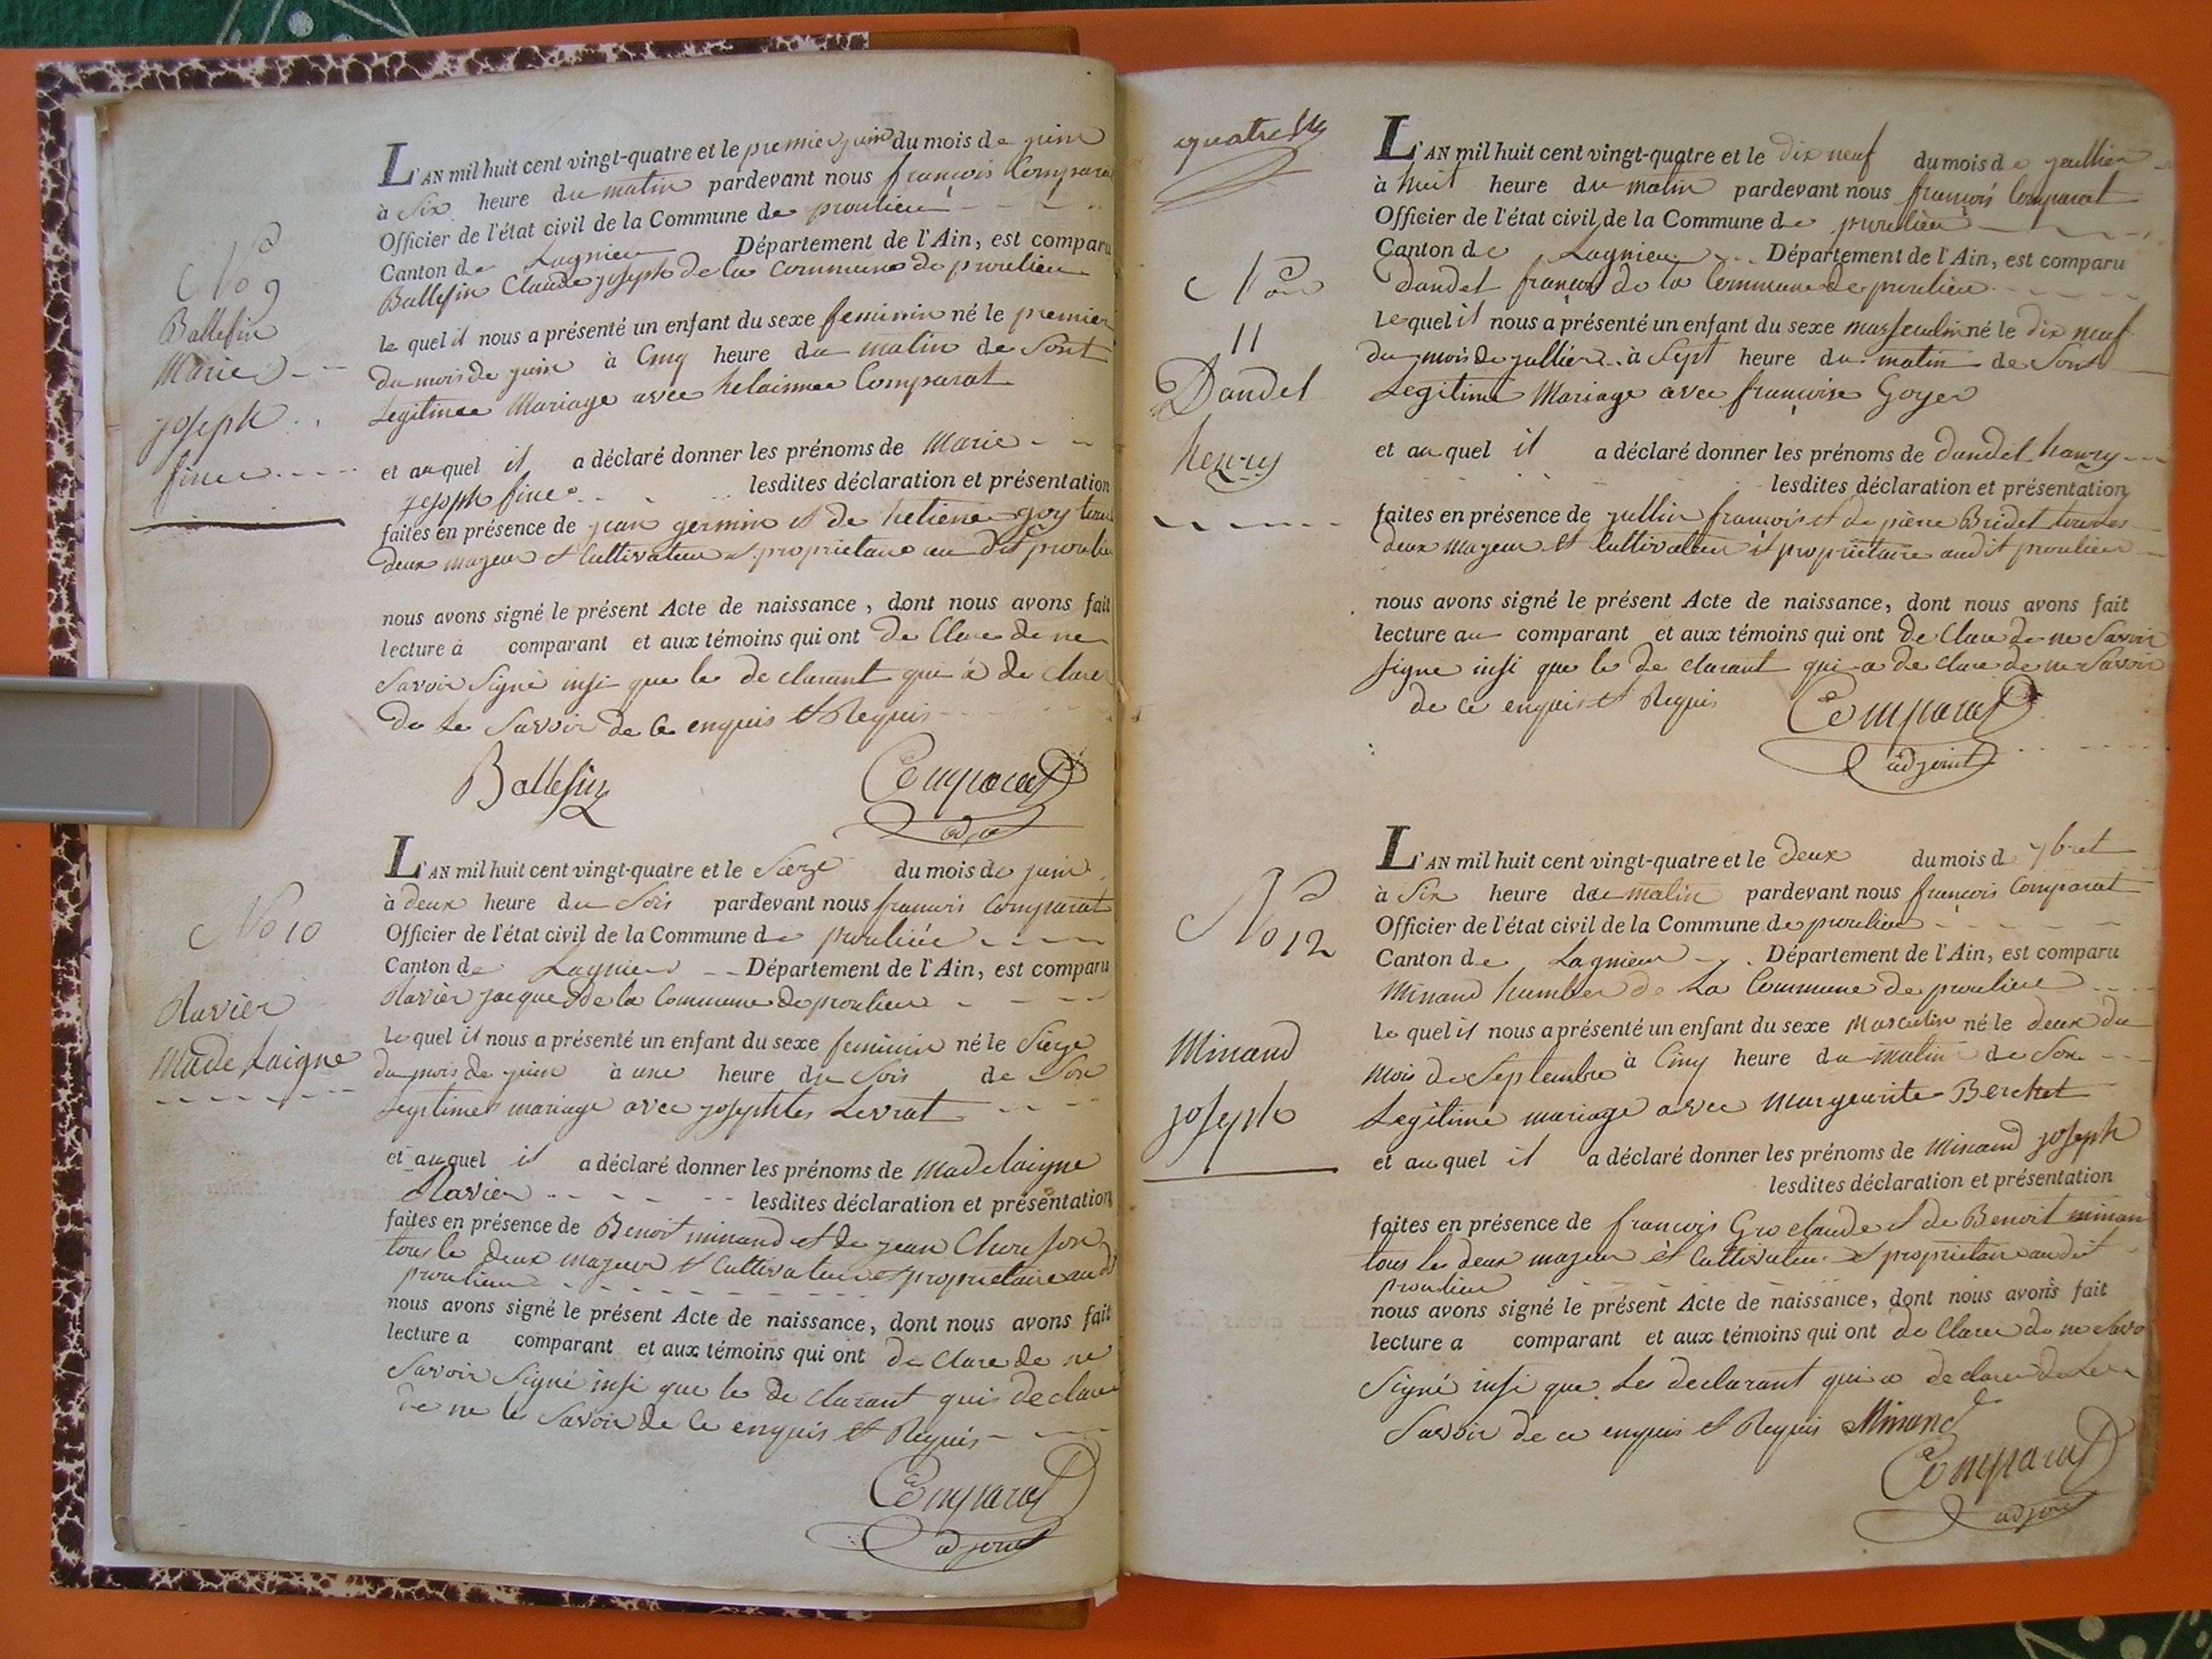 No 9
Ballefin
Marie
joseph
fine
L'AN mil huit cent vingt-quatre et le premier juin du mois de juin
à Six heure du matin pardevant nous françois Comparat
Officier de l'état civil de la Commune de proulieu
Canton de Lagnieu Département de l'Ain, est comparu
Ballefin Claude joseph de la Commune de proulieu
le quel il nous a présenté un enfant du sexe feminin né le premier
du mois de juin à Cinq heure du matin de Sont
Legitime Mariage avec helainne Comparat
et au quel il a déclaré donner les prénoms de Marie
joseph fine lesdites déclaration et présentation
faites en présence de jean germin et de hetiene goy tous
deux majeur et Cultivateur et proprietaire au dit proulieu
nous avons signé le présent Acte de naissance, dont nous avons fait
lecture à comparant et aux témoins qui ont de Clare de ne
Savoir Signé insi que le de clarant qui à de Clare
de Le Savoir de Ce enquis et Requis
Ballefin Comparat
adjoint
No 10
Ravier
Made Laigne
L'AN mil huit cent vingt-quatre et le Sieze du mois de juin
à deux heure du Soir pardevant nous francois Comparat
Officier de l'état civil de la Commune de proulieu
Canton de Lagnieu Département de l'Ain, est comparu
Ravier jacque de la Commune de proulieu
le quel il nous a présenté un enfant du sexe feminin né le Sieze
du mois de juin à une heure du Soir de Son
Legitime mariage avec josephtes Levrat
et au quel il a déclaré donner les prénoms de Madelaigne
Ravier lesdites déclaration et présentation
faites en présence de Benoit minand et de jean
tous le deux majeur et Cultivateur et proprietaire au dit
proulieu
nous avons signé le présent Acte de naissance, dont nous avons fait
lecture a comparant et aux témoins qui ont de Clare de ne
Savoir Signé insi que le de Clarant qui declare
de ne le Savoir de Ce enquis et Requis
Comparat
adjoint
quatre
No
11
Dandel
henry
L'AN mil huit cent vingt-quatre et le Dix neuf du mois de juillier
à huit heure du matin pardevant nous françois Comparat
Officier de l'état civil de la Commune de proulieu
Canton de Lagnieu Département de l'Ain, est comparu
Dandel françois de la Commune de proulieu
Le quel il nous a présenté un enfant du sexe masseculin né le dix neuf
du mois de jullier à Sept heure du matin de Sont
Legitime Mariage avec françoise Goyer
et au quel il a déclaré donner les prénoms de Dandel henry
lesdites déclaration et présentation
faites en présence de jullin francois et de pière Bridet tous les
deux Majeur et Cultivateur et proprietaire audit proulieu
nous avons signé le présent Acte de naissance, dont nous avons fait
lecture au comparant et aux témoins qui ont de Clare de ne Savoir
signe insi que le de clarant qui a de clare de ne Savoir
de Ce enquis et Requis Comparat
adjoint
No 12
Minand
joseph
L'AN mil huit cent vingt-quatre et le Deux du mois d 7bret
à Six heure du matin pardevant nous françois Comparat
Officier de l'état civil de la Commune de proulieu
Canton de Lagnieu Département de l'Ain, est comparu
Minand humber de La Commune de proulieu
Le quel il nous a présenté un enfant du sexe Masculin né le deux du
Mois de Septembre à Cinq heure du matin de Son
Legitime mariage avec Marguerite Berchet
et au quel il a déclaré donner les prénoms de Minand joseph
lesdites déclaration et présentation
faites en présence de francois Gro claude et de Benoit minan
tous les deux majeur et Cultivateur et proprietaire audit
proulieu
nous avons signé le présent Acte de naissance, dont nous avons fait
lecture a comparant et aux témoins qui ont de Clare de ne Savo
Signé insi que Les declarant qui a declare de Le
Savoir de ce enquis et Requis Minand
Comparat
adjoint